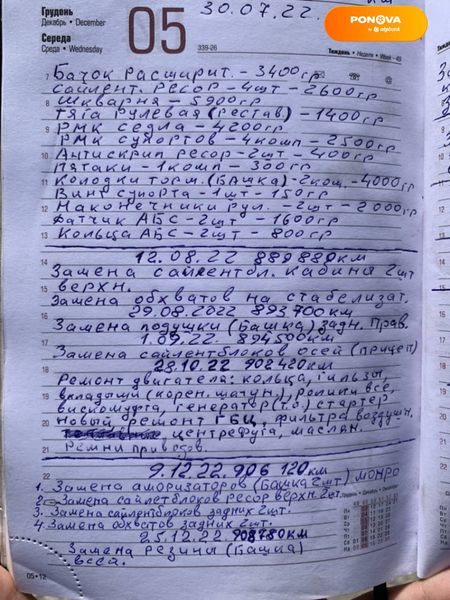 Грудень
Декабрь • December
30.07.22.
PONOVA
by algobrat
05
Середа
Среда • Wednesday
339-26
Тиждень • Неделя • Week - 49
Бачок расширит. - 3400гр
Сайлент. ресор - 4шт - 2600гр
Шкварня - 5900гр
Тяга рулевая (рестав.) - 1400гр
РМК седла - 4200гр
РМК супортов - 4комп - 2500гр
Антискрип ресор - 2шт - 400гр
Пятаки - 1комп - 300гр
Колодки торм. (Башка) - 2ком. - 4000гр
Винт супорта - 1шт - 150гр
Наконечники рул. - 2шт - 2000гр
Датчик АБС - 2шт - 1600гр
Кольца АБС - 2шт - 800гр
12.08.22 889880км
Замена сайлентбл. кабины 2шт
верхн.
Замена обхватов на стабелизат.
29.08.2022 893700км
Замена подушки (Башка) задн. Прав.
1.09.22. 894500км
Замена сайлентблоков осей (прицеп)
23.10.22 902420км
Ремонт двигателя: кольца, гильзы,
вкладыши (корен. шатун.), ролики все,
вискомуфта, генератор (т.о.) стартер
Новый ремонт ГБЦ, фильтра воздушн.
центрефуга, маслян.
Ремни приводов.
9.12.22. 906 120км
1. Замена аморизаторов (Башка 2шт.) монро
2. Замена сайлетблоков ресор верхн. 2шт.
3. Замена сайлентблоков задних 2шт.
4. Замена обхватов задних 2шт.
25.12.22 908780км
Замена резины (Башка)
вся.
05•12